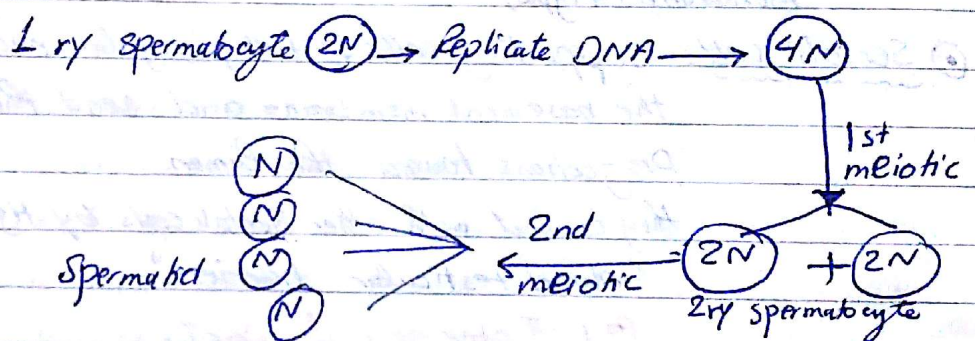 1ry spermatocyte (2N) → Replicate DNA → (4N)
1st
meiotic
2N + 2N
2ry spermatocyte
2nd
meiotic
N
N
N
N
Spermatid